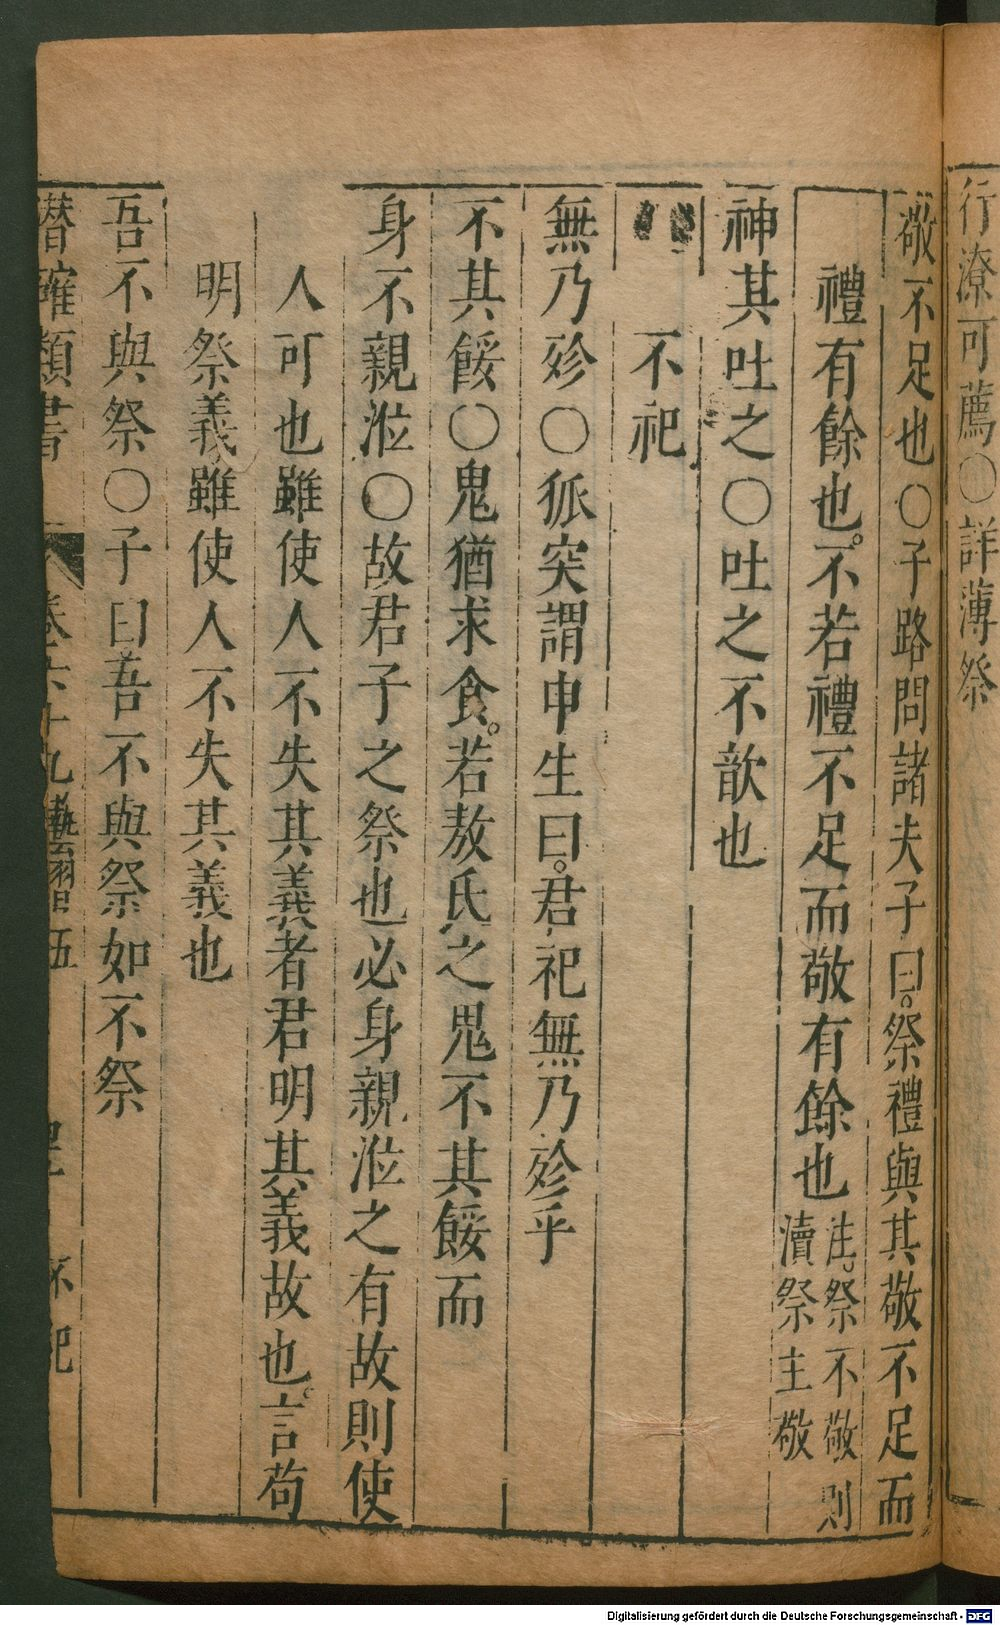 行潦可薦〇詳薄祭
敬不足也〇子路問諸夫子曰祭禮與其敬不足而
禮有餘也不若禮不足而敬有餘也
注祭不敬則
瀆祭主敬
神其吐之〇吐之不歆也
不祀
無乃殄〇狐突謂申生曰君祀無乃殄乎
不其餒〇鬼猶求食若敖氏之鬼不其餒而
身不親涖〇故君子之祭也必身親涖之有故則使
人可也雖使人不失其義者君明其義故也言苟
明祭義雖使人不失其義也
吾不與祭〇子曰吾不與祭如不祭
潛確類書 卷六十九藝習五 不祀
Digitalisierung gefördert durch die Deutsche Forschungsgemeinschaft - DFG